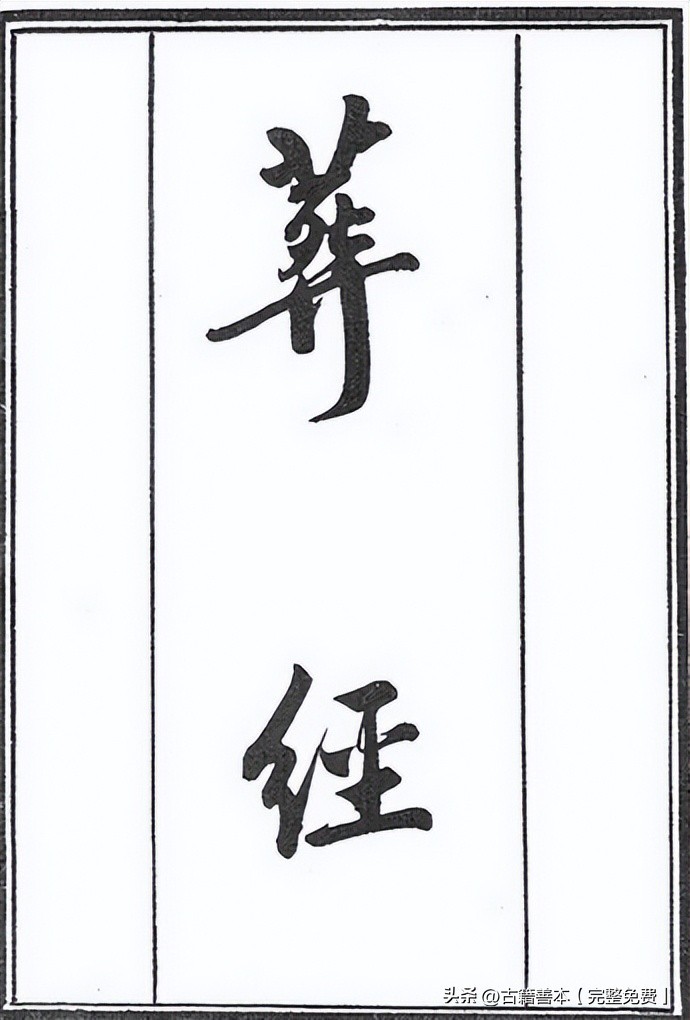 葬
經
头条 @古籍善本【完整免费】